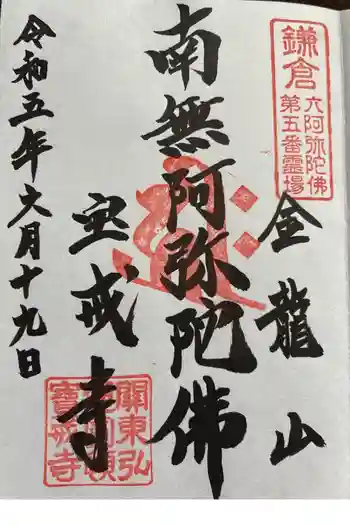 鎌倉
六阿弥陀佛
第五番霊場
金龍山
南無阿弥陀佛
宝戒寺
關東弘
寶戒寺
令和五年六月十九日